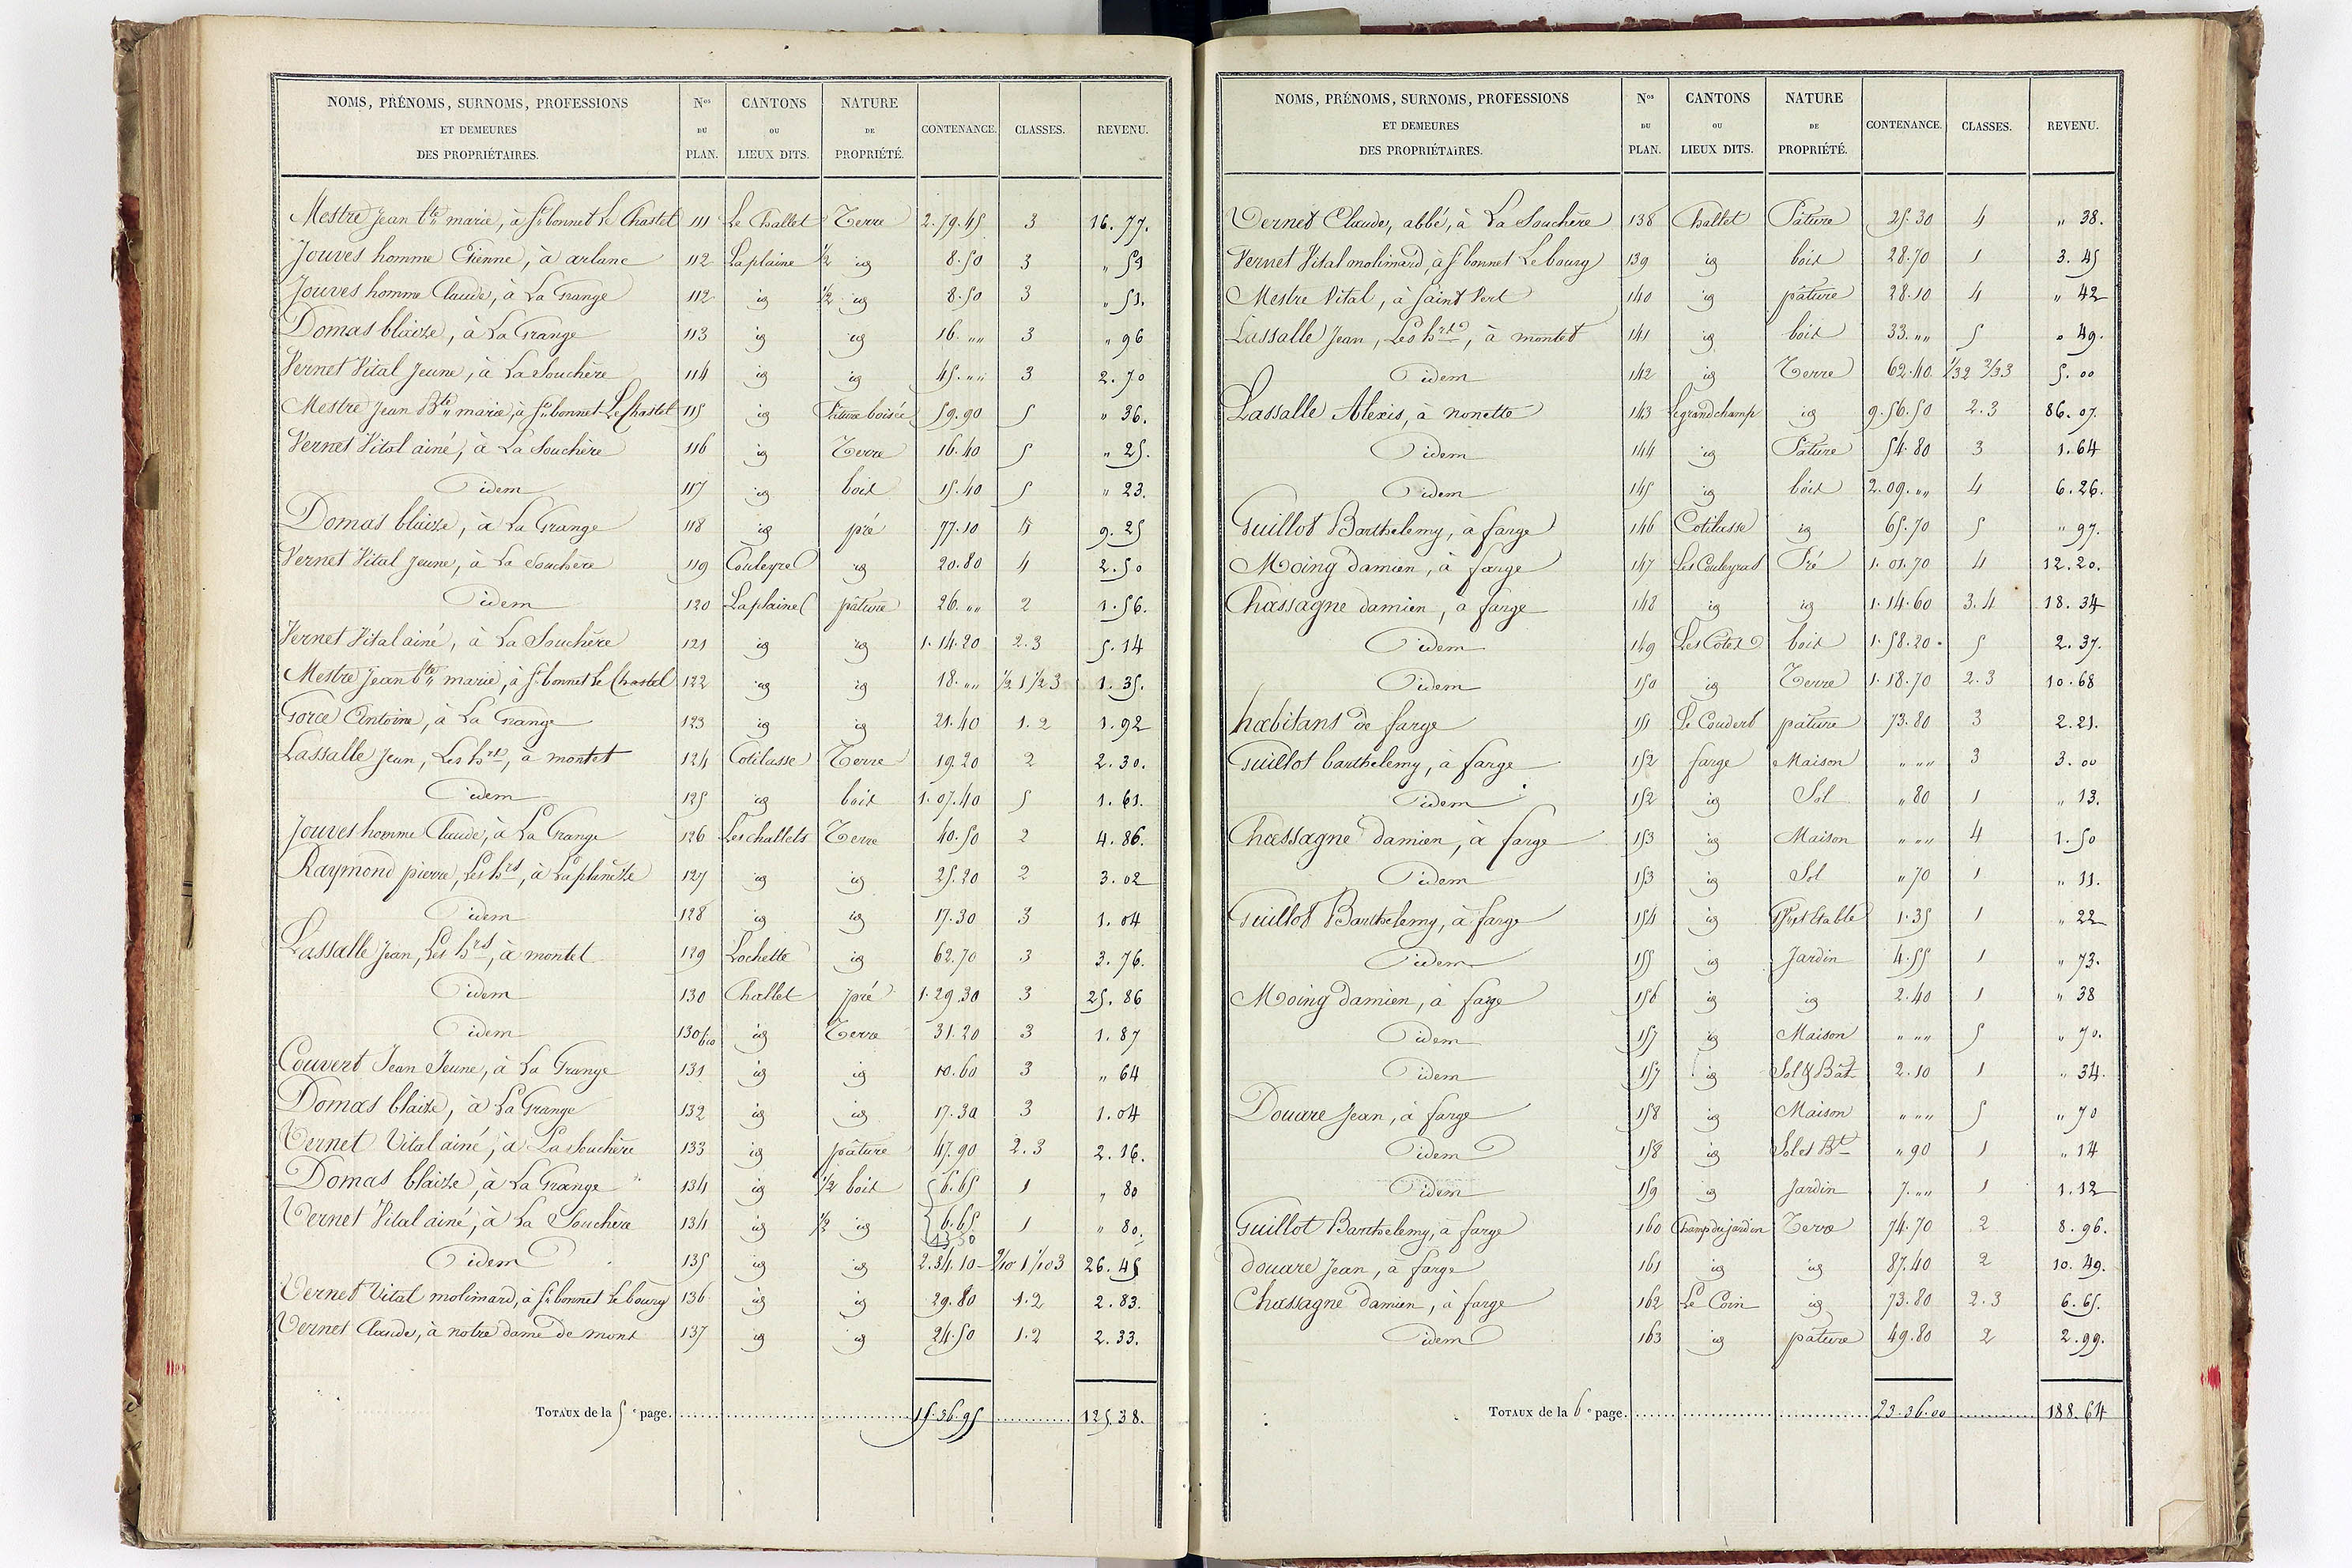 NOMS, PRÉNOMS, SURNOMS, PROFESSIONS ET DEMEURES DES PROPRIÉTAIRES. Nos DU PLAN. CANTONS OU LIEUX DITS. NATURE DE PROPRIÉTÉ. CONTENANCE. CLASSES. REVENU.
Mestre Jean Bte marie, à St bonnet le Chastel 111 Le Challet Terre 2.79.45 3 16.77.
Jouves homme Etienne, à arlanc 112 La plaine 1/2 id 8.50 3 " 51
Jouves homme Claude, à La Grange 112 id 1/2 id 8.50 3 " 51.
Domas blaize, à La Grange 113 id id 16. "" 3 " 96
Vernet Vital Jeune, à La Souchère 114 id id 45. "" 3 2.70
Mestre Jean Bte marie, à St bonnet Le Chastel 115 id Pature boisée 59.90 5 " 36.
Vernet Vital ainé, à La Souchère 116 id Terre 16.40 5 " 25.
idem 117 id bois 15.40 5 " 23.
Domas blaize, à La Grange 118 id pré 77.10 4 9.25
Vernet Vital Jeune, à La Souchère 119 Couleyre id 20.80 4 2.50
idem 120 La plaine pâture 26. "" 2 1.56.
Vernet Vital ainé, à La Souchère 121 id id 1.14.20 2.3 5.14
Mestre Jean bte marie, à St bonnet le Chastel 122 id id 18. "" 1/2 1 1/2 3 1.35.
Gorce Antoine, à La Grange 123 id id 21.40 1.2 1.92
Lassalle Jean, Les hrs, à montet 124 Cotilasse Terre 19.20 2 2.30.
idem 125 id bois 1.07.40 5 1.61.
Jouves homme Claude, à La Grange 126 Les challets Terre 40.50 2 4.86.
Raymond pierre, Les hrs, à La planèze 127 id id 25.20 2 3.02
idem 128 id id 17.30 3 1.04
Lassalle Jean, Les hrs, à montet 129 Lochette id 62.70 3 3.76.
idem 130 Challet pré 1.29.30 3 25.86
idem 130 bis id Terre 31.20 3 1.87
Couvert Jean Jeune, à La Grange 131 id id 10.60 3 " 64
Domas blaize, à La Grange 132 id id 17.30 3 1.04
Vernet Vital ainé, à La Souchère 133 id pâture 47.90 2.3 2.16.
Domas blaize, à La Grange 134 id 1/2 bois 6.65 1 " 80
Vernet Vital ainé, à La Souchère 134 id 1/2 id 6.65 1 " 80.
13,30
idem 135 id id 2.34.10 9/10 1 1/10 3 26.45
Vernet Vital molimard, à St bonnet le bourg 136 id id 29.80 1.2 2.83.
Vernet Claude, à notre dame de mons 137 id id 24.50 1.2 2.33.
TOTAUX de la 5e page. 15.36.95 125.38.
NOMS, PRÉNOMS, SURNOMS, PROFESSIONS ET DEMEURES DES PROPRIÉTAIRES. Nos DU PLAN. CANTONS OU LIEUX DITS. NATURE DE PROPRIÉTÉ. CONTENANCE. CLASSES. REVENU.
Vernet Claude, abbé, à La Souchère 138 Challet Pature 25.30 4 " 38.
Vernet Vital molimard, à St bonnet Le bourg 139 id bois 28.70 1 3.45
Mestre Vital, à Saint Vert 140 id pâture 28.10 4 " 42
Lassalle Jean, Les hrs, à montet 141 id bois 33. "" 5 " 49.
idem 142 id Terre 62.40 1/3 2 2/3 3 5.00
Lassalle Alexis, à nonette 143 Le grand champ id 9.56.50 2.3 86.07.
idem 144 id Pature 54.80 3 1.64
idem 145 id bois 2.09. "" 4 6.26.
Guillot Barthelemy, à farge 146 Cotilasse id 65.70 5 " 97.
Moing damien, à farge 147 Les Couleyras Pré 1.01.70 4 12.20.
Chassagne damien, à farge 148 id id 1.14.60 3.4 18.34
idem 149 Les Cotes bois 1.58.20 5 2.37.
idem 150 id Terre 1.18.70 2.3 10.68
habitans de farge 151 Le Couderb pature 73.80 3 2.21.
Guillot barthelemy, à farge 152 farge Maison " "" 3 3.00
idem 152 id Sol " 80 1 " 13.
Chassagne damien, à farge 153 id Maison " "" 4 1.50
idem 153 id Sol " 70 1 " 11.
Guillot Barthelemy, à farge 154 id et Etable 1.35 1 " 22
idem 155 id Jardin 4.55 1 " 73.
Moing damien, à farge 156 id id 2.40 1 " 38
idem 157 id Maison " "" 5 " 70.
idem 157 id Sol & Bât 2.10 1 " 34.
Douare Jean, à farge 158 id Maison " "" 5 " 70
idem 158 id Sol et Bt " 90 1 " 14
idem 159 id Jardin 7. "" 1 1.12
Guillot Barthelemy, à farge 160 Champ du jardin Terre 74.70 2 8.96.
douare Jean, à farge 161 id id 87.40 2 10.49.
Chassagne damien, à farge 162 Le Coin id 73.80 2.3 6.65.
idem 163 id pature 49.80 2 2.99.
TOTAUX de la 6e page. 23.36.00 188.64